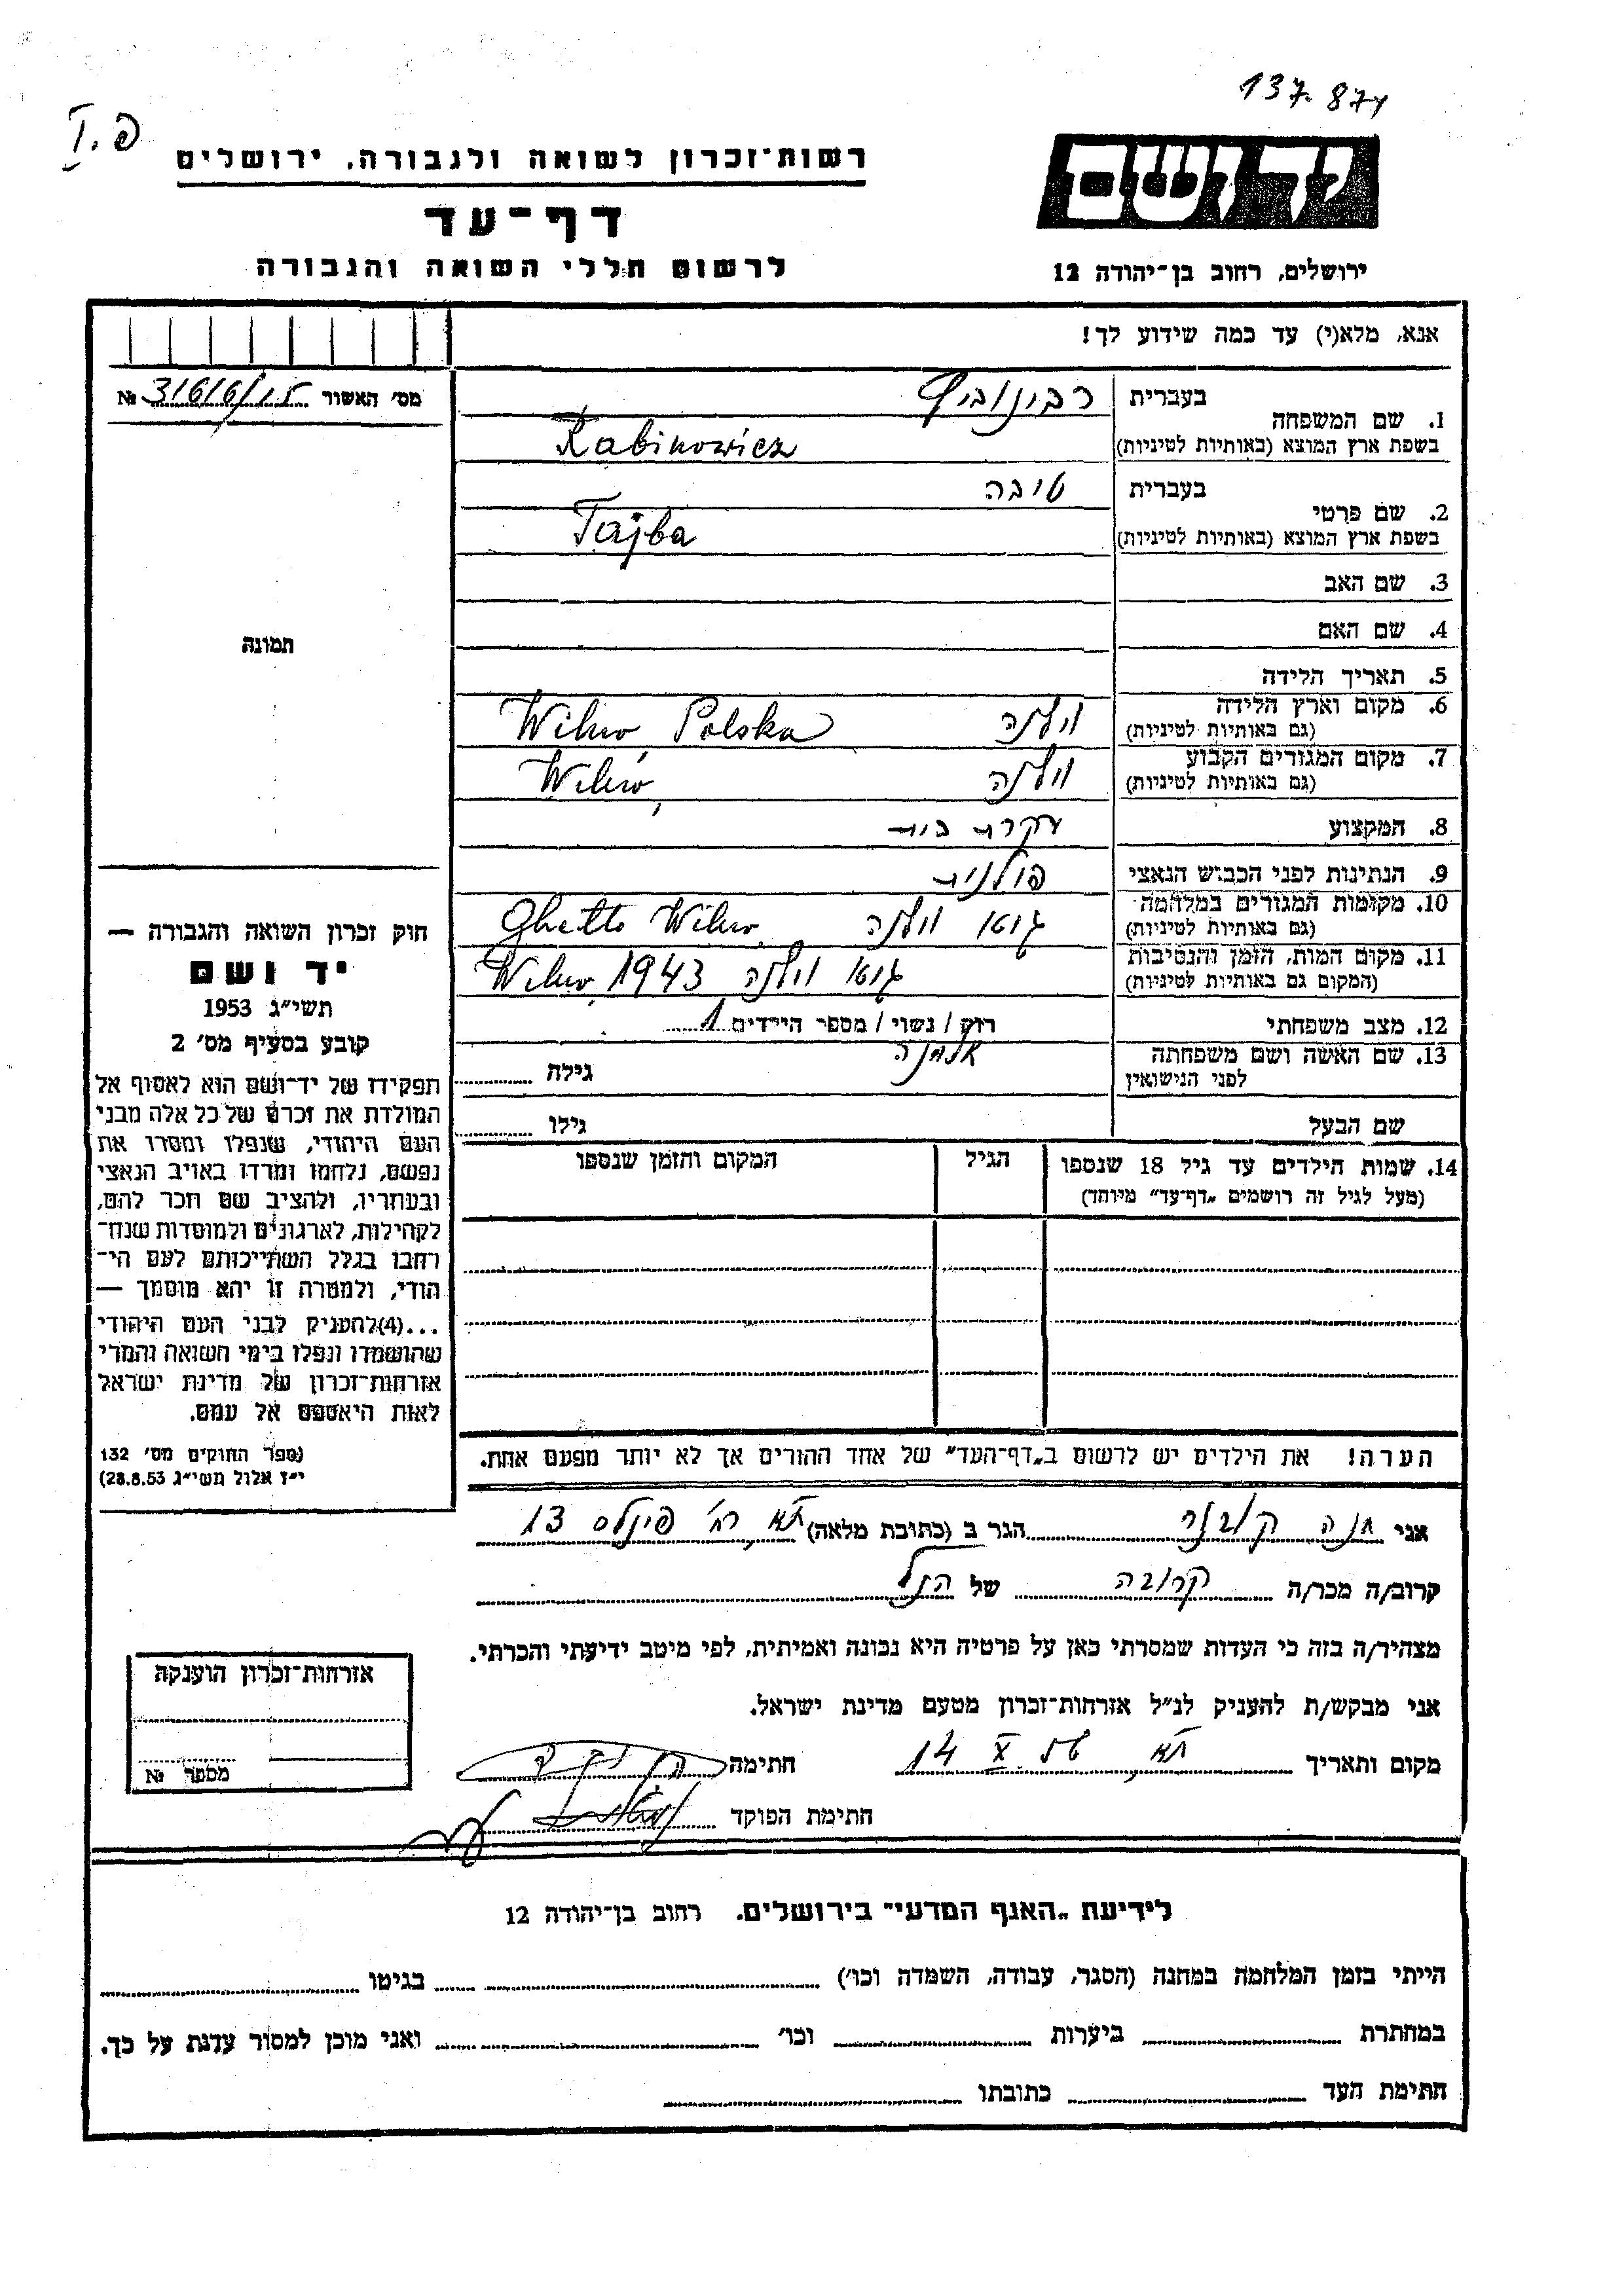 137.874
I.פ
יד ושם
רשות־זכרון לשואה ולגבורה, ירושלים
דף־עד
לרשום חללי השואה והגבורה
ירושלים, רחוב בן־יהודה 12
אנא, מלא(י) עד כמה שידוע לך!
מס׳ האשור 31616/15 №
1. שם המשפחה בעברית רבינוביץ
בשפת ארץ המוצא (באותיות לטיניות) Rabinowicz
2. שם פרטי בעברית טובה
בשפת ארץ המוצא (באותיות לטיניות) Tajba
3. שם האב
4. שם האם
תמונה
5. תאריך הלידה
6. מקום וארץ הלידה
(גם באותיות לטיניות) וילנה Wilno Polska
7. מקום המגורים הקבוע
(גם באותיות לטיניות) וילנה Wilno
8. המקצוע עקרת בית
9. הנתינות לפני הכבוש הנאצי פולנית
10. מקומות המגורים במלחמה
(גם באותיות לטיניות) גטו וילנה Ghetto Wilno
11. מקום המות, הזמן והנסיבות
(המקום גם באותיות לטיניות) גטו וילנה Wilno 1943
12. מצב משפחתי רוק / נשוי / מספר הילדים 1
אלמנה
13. שם האשה ושם משפחתה
לפני הנישואין גילה
שם הבעל גילו
14. שמות הילדים עד גיל 18 שנספו הגיל המקום והזמן שנספו
(מעל לגיל זה רושמים „דף־עד״ מיוחד)
חוק זכרון השואה והגבורה —
יד ושם
תשי״ג 1953
קובע בסעיף מס׳ 2
תפקידו של יד־ושם הוא לאסוף אל
המולדת את זכרם של כל אלה מבני
העם היהודי, שנפלו ומסרו את
נפשם, נלחמו ומרדו באויב הנאצי
ובעוזריו, ולהציב שם וזכר להם,
לקהילות, לארגונים ולמוסדות שנח־
רבו בגלל השתייכותם לעם הי־
הודי, ולמטרה זו יהא מוסמך —
...(4)להעניק לבני העם היהודי
שהושמדו ונפלו בימי השואה והמרי
אזרחות־זכרון של מדינת ישראל
לאות היאספם אל עמם.
(ספר החוקים מס׳ 132
י״ז אלול תשי״ג 28.8.53)
הערה! את הילדים יש לרשום ב„דף־העד״ של אחד ההורים אך לא יותר מפעם אחת.
אני חנה קובנר הגר ב (כתובת מלאה) ת״א, רח׳ פינלס 13
קרוב/ה מכר/ה קרובה של הנ״ל
מצהיר/ה בזה כי העדות שמסרתי כאן על פרטיה היא נכונה ואמיתית, לפי מיטב ידיעתי והכרתי.
אני מבקש/ת להעניק לנ״ל אזרחות־זכרון מטעם מדינת ישראל.
מקום ותאריך ת״א, 14 X 56 חתימה
חתימת הפוקד
אזרחות־זכרון הוענקה
מספר №
לידיעת „האגף המדעי״ בירושלים. רחוב בן־יהודה 12
הייתי בזמן המלחמה במחנה (הסגר, עבודה, השמדה וכו׳) בגיטו
במחתרת ביערות וכו׳ ואני מוכן למסור עדות על כך.
חתימת העד כתובתו